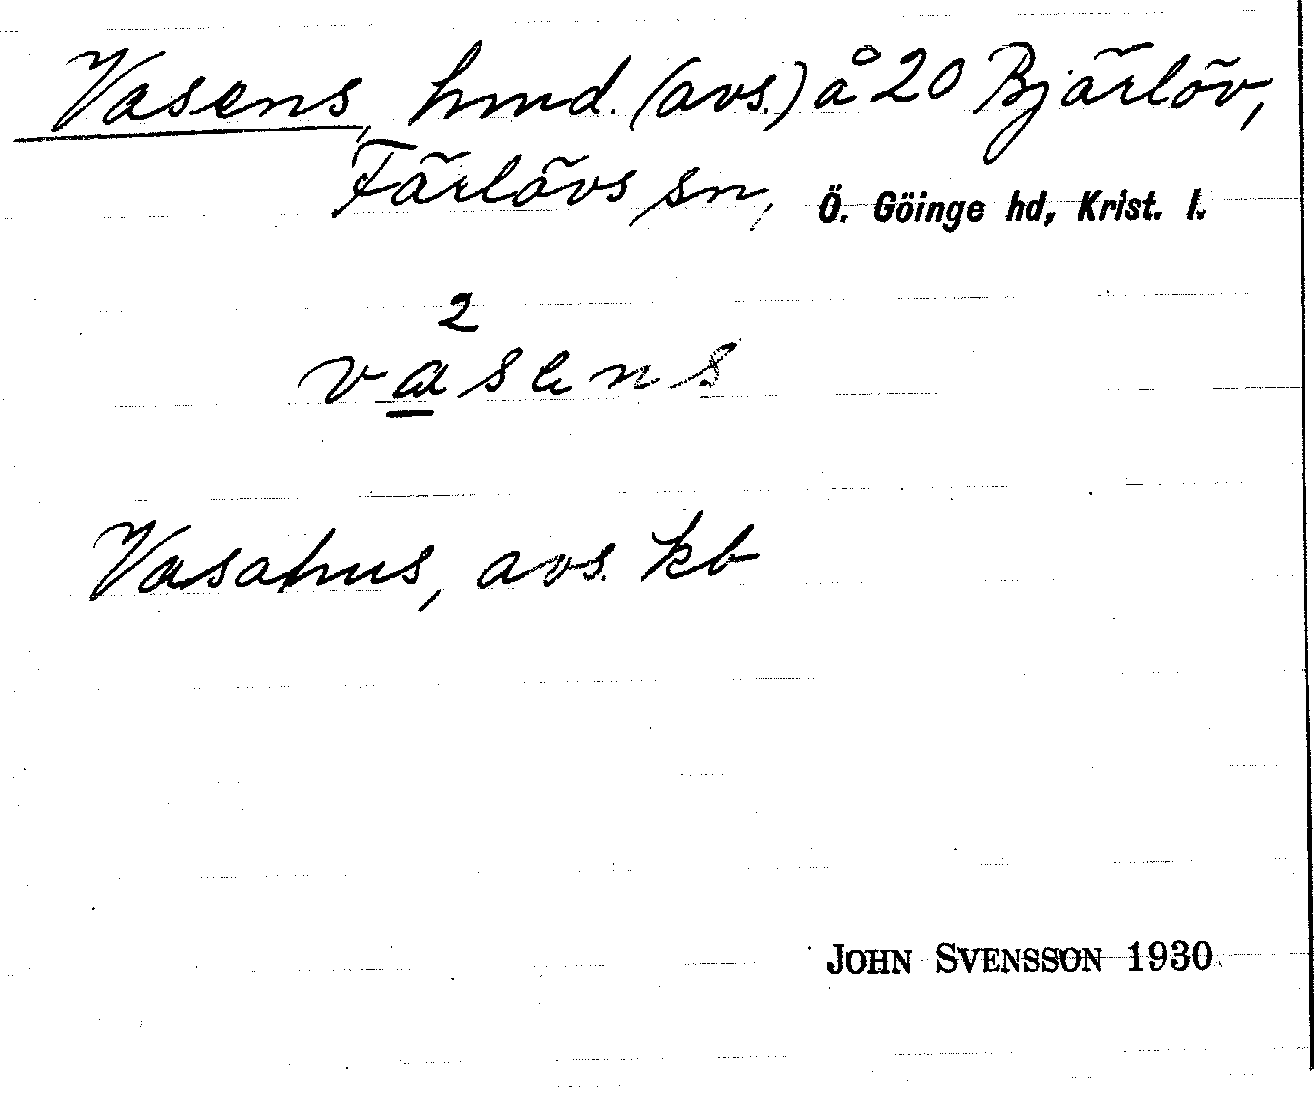 Vasens, hmd. (avs.) å 20 Bjärlöv,
Färlövs sn, Ö. Göinge hd, Krist. l.
2
vasens
Vasahus, avs. kb
JOHN SVENSSON 1930